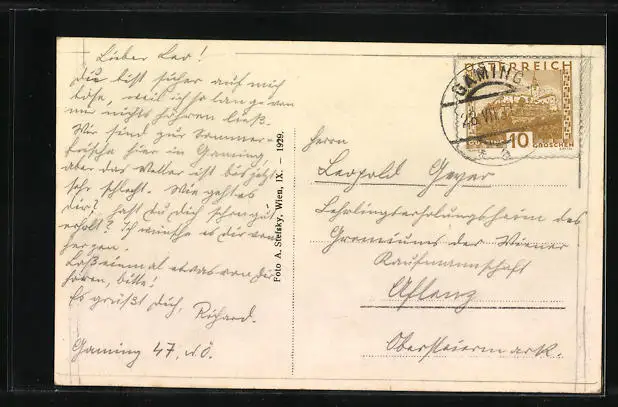 Lieber Leo!
Du bist sicher auf mich
böse, weil ich so lange von
mir nichts hören ließ.
Wir sind zur Sommer-
frische hier in Gaming,
aber das Wetter ist bis jetzt
sehr schlecht. Wie geht es
Dir? Hast Du Dich schon gut
erholt? Ich wünsche es Dir von
Herzen.
Laß einmal etwas von Dir
hören, bitte!
Es grüßt Dich, Richard.
Gaming 47, N.Ö.
Foto A. Stefsky, Wien, IX. — 1929.
ÖSTERREICH
10
GROSCHEN
GAMING
28 VII
Herrn
Leopold Geyer
Lehrlingserholungsheim des
Gremiums der Wiener
Kaufmannschaft
Aflenz
Obersteiermark.